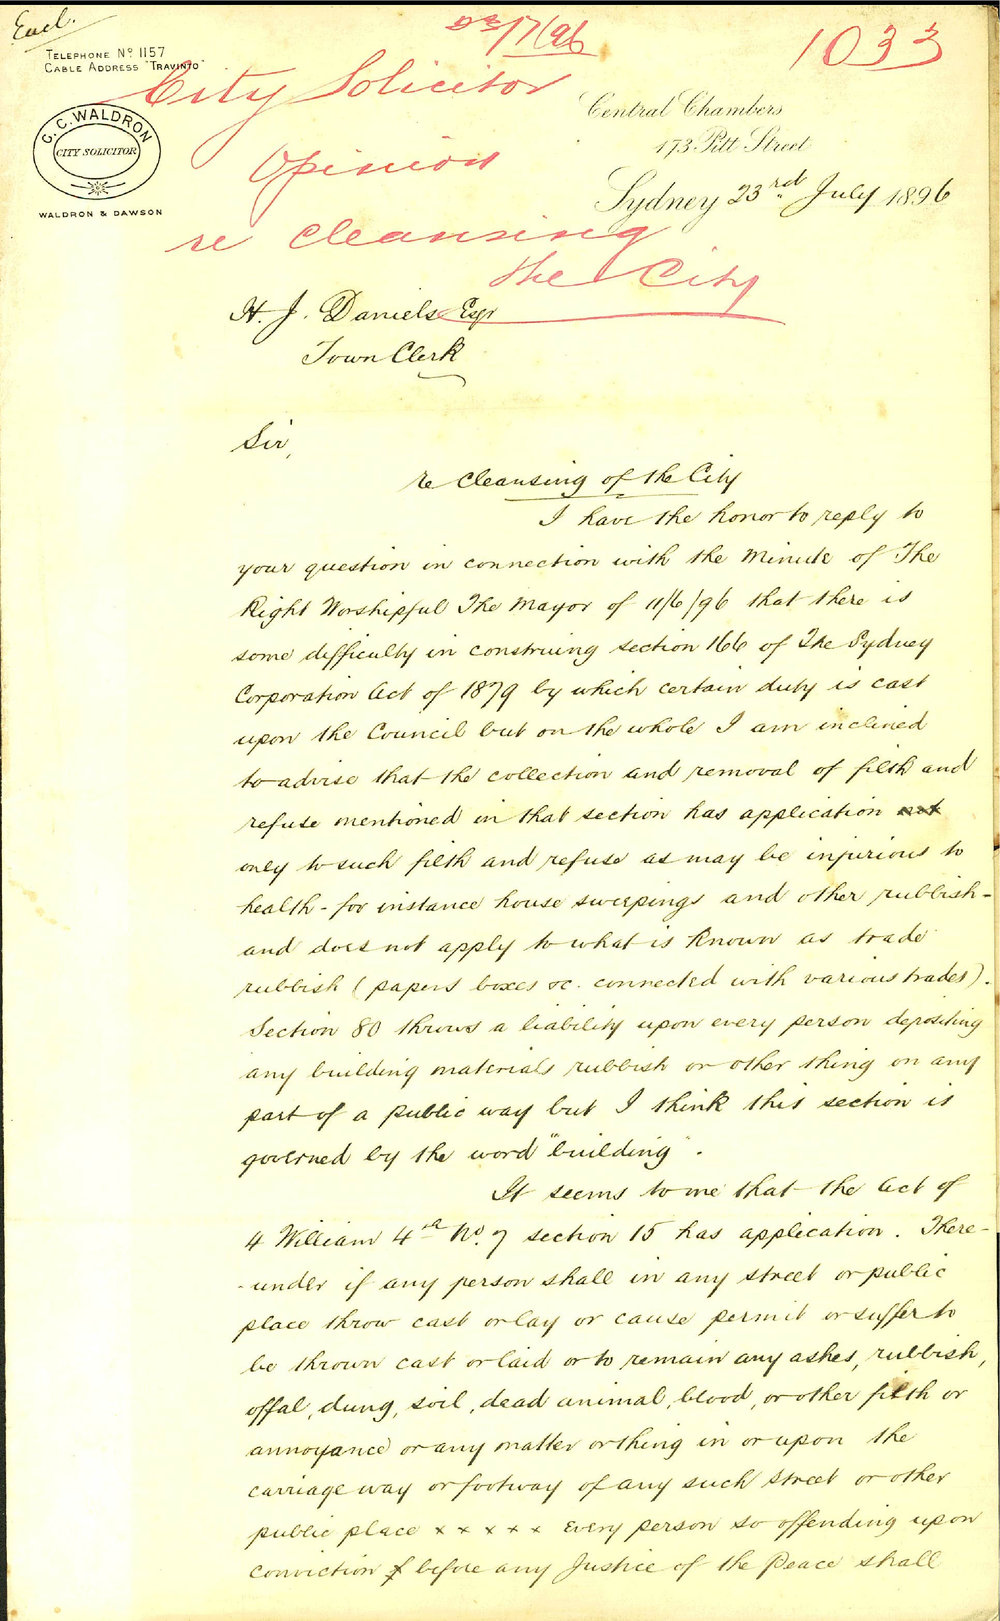 Encl.
23/7/96
1033
TELEPHONE No 1157
CABLE ADDRESS "TRAVINTO"
City Solicitor
Opinion
re cleansing
the City
C. C. WALDRON
CITY SOLICITOR
WALDRON & DAWSON
Central Chambers
173 Pitt Street
Sydney 23rd July 1896
H. J. Daniels Esqr
Town Clerk
Sir,
re cleansing of the City
I have the honor to reply to
your question in connection with the Minute of The
Right Worshipful The Mayor of 11/6/96 that there is
some difficulty in construing section 166 of The Sydney
Corporation Act of 1879 by which certain duty is cast
upon the Council but on the whole I am inclined
to advise that the collection and removal of filth and
refuse mentioned in that section has application not
only to such filth and refuse as may be injurious to
health - for instance house sweepings and other rubbish -
and does not apply to what is known as trade
rubbish (papers boxes &c. connected with various trades).
Section 80 throws a liability upon every person depositing
any building materials rubbish or other thing on any
part of a public way but I think this section is
governed by the word "building".
It seems to me that the Act of
4 William 4th No. 7 section 15 has application. There-
-under if any person shall in any street or public
place throw cast or lay or cause permit or suffer to
be thrown cast or laid or to remain any ashes, rubbish,
offal, dung, soil, dead animal, blood, or other filth or
annoyance or any matter or thing in or upon the
carriage way or footway of any such street or other
public place x x x x x every person so offending upon
conviction before any Justice of the Peace shall